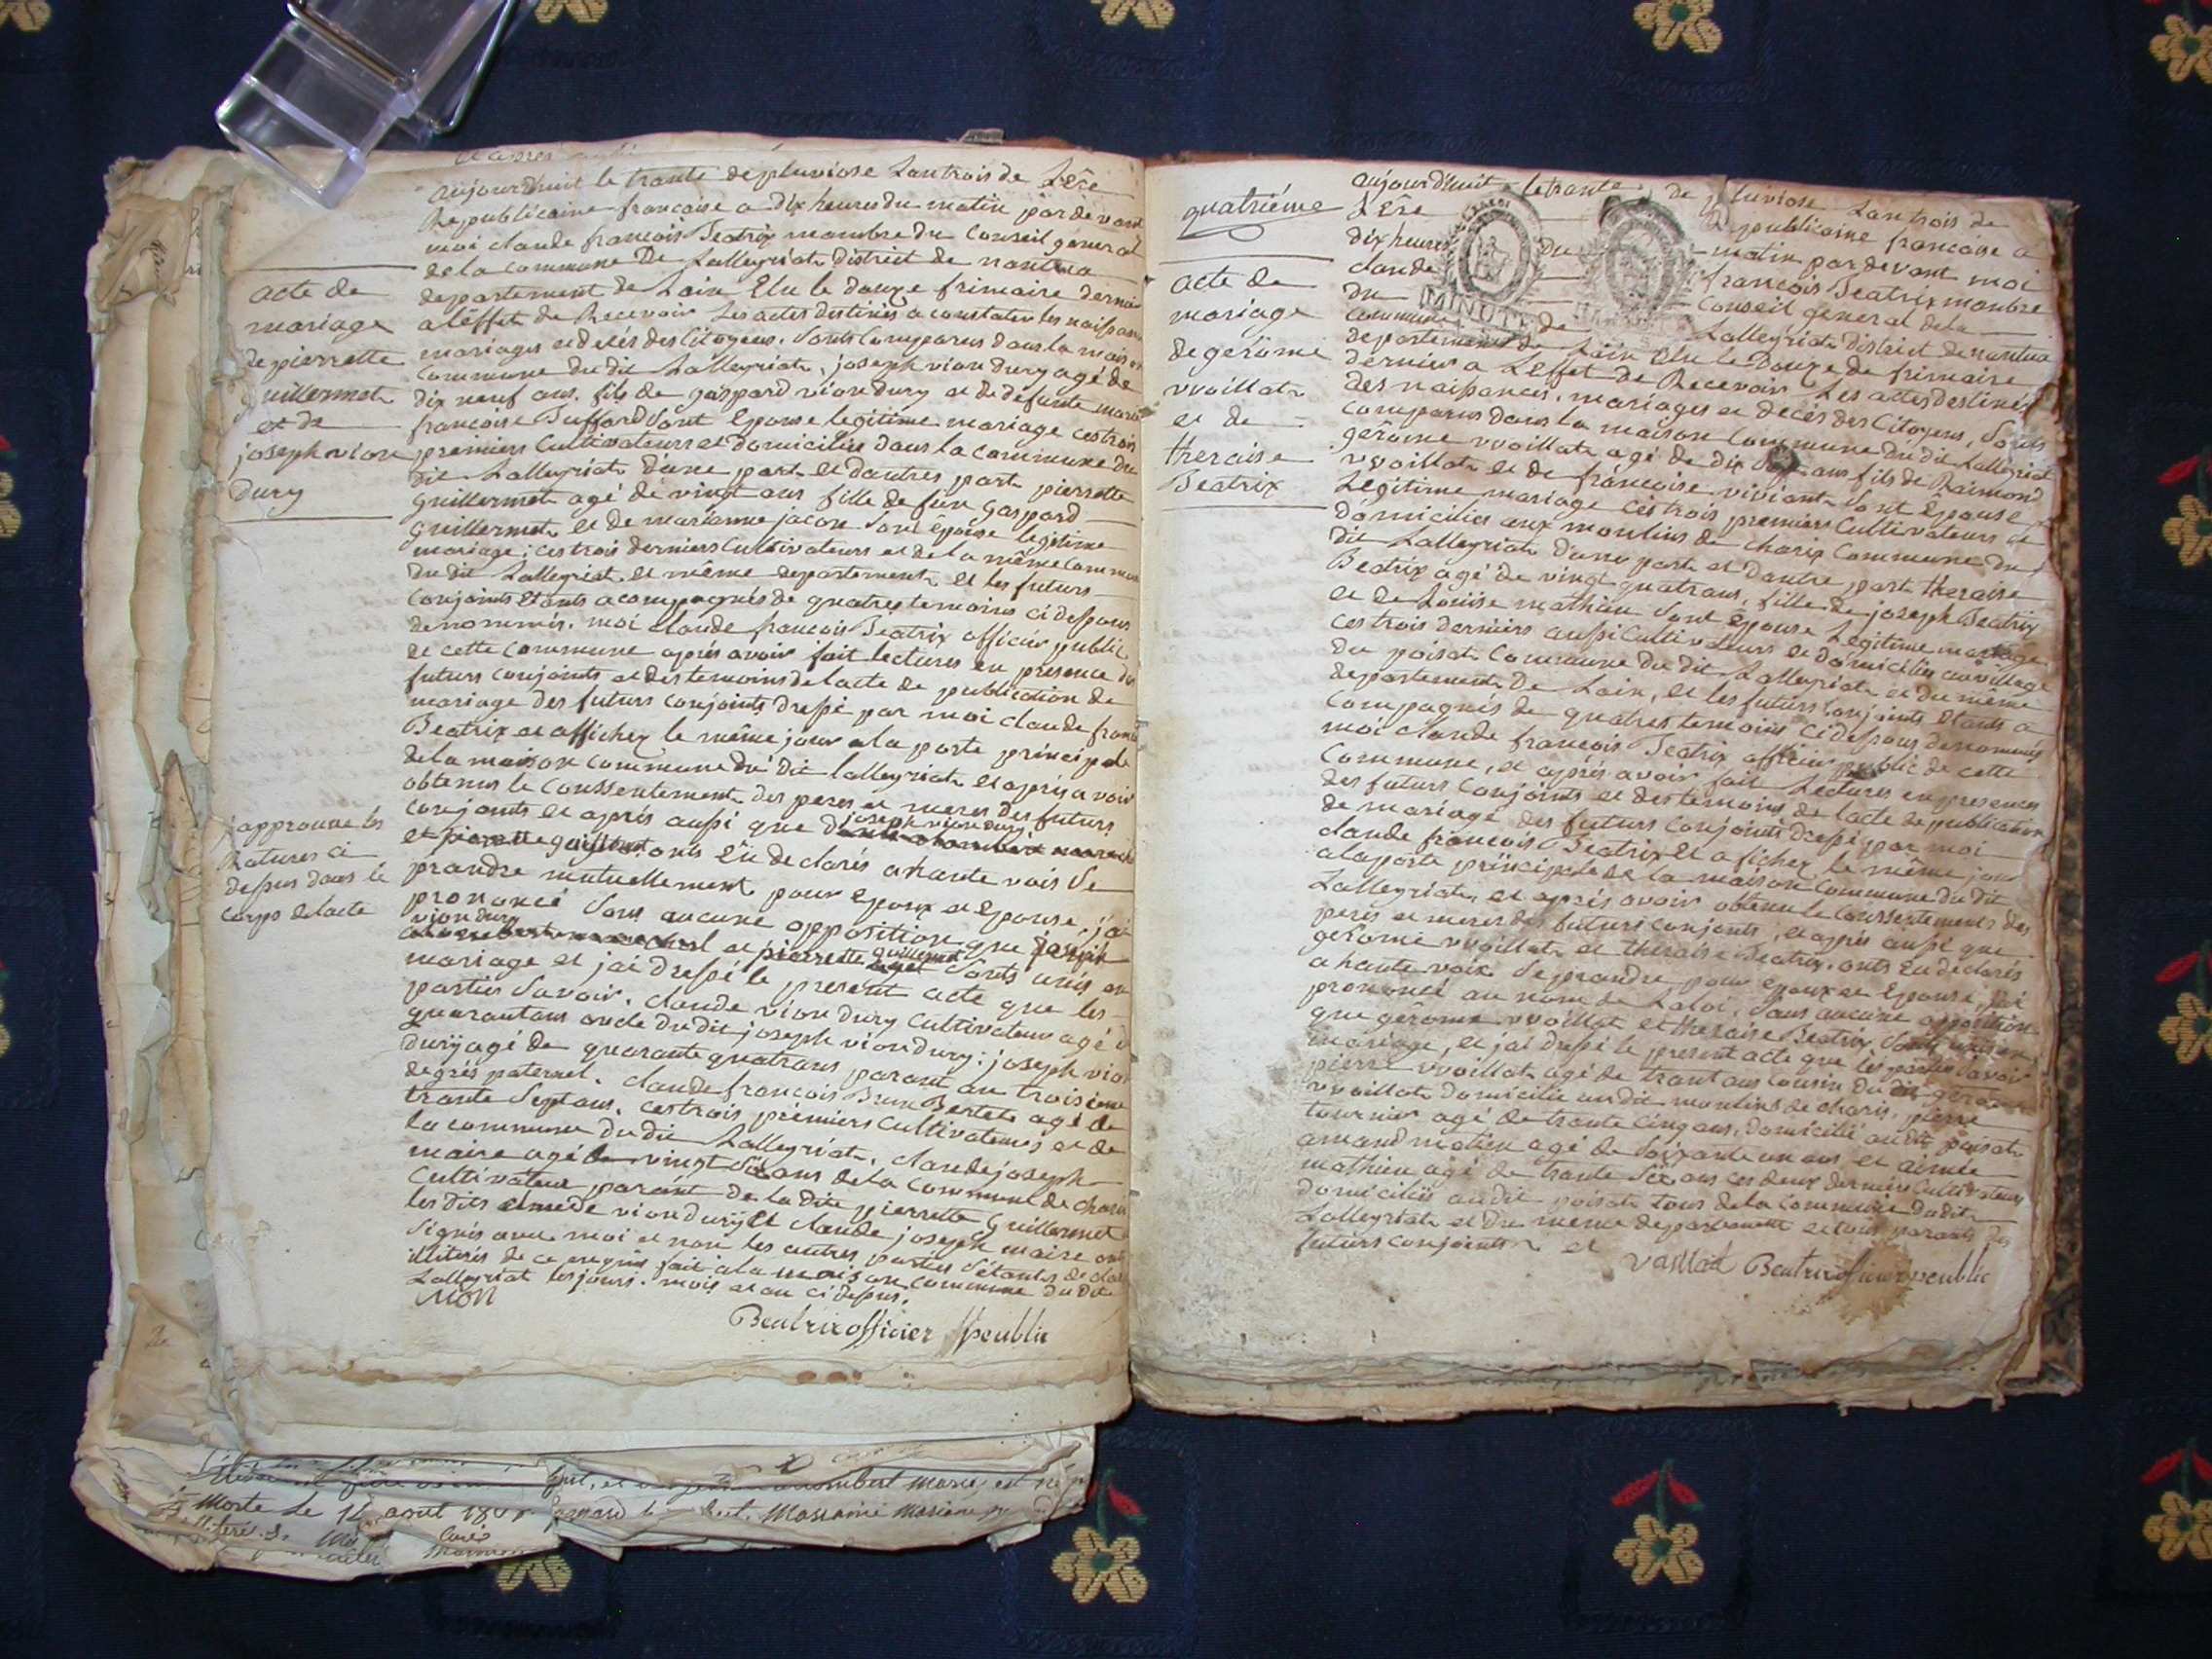 aujourdhuit le trante de pluviose Lantrois de Lêre
Republicaine francaise a dix heures du matin par devant
moi claude francois Beatrix mambre du Conseil general
de la commune de Lalleyriat district de nantua
departement de Lain Elu le douze frimaire dernier
a lêffet de Recevoir Les actes destinés a constater les naissances
mariages et decés des Citoyens. Sonts Comparus dans la maison
Commune du dit Lalleyriat, joseph vion dury agé de
dix neuf ans, fils de gaspard vion dury et de defunte marie
francoise Buffard Sont Epouse legitime mariage ces trois
premiers Cultivateurs et domiciliés dans la commune du
dit Lalleyriat d'une part et dautres part pierrette
guillermet agé de vingt ans fille de feu gaspard
guillermet et de marianne jacon Sont épouse legitime
mariage; ces trois derniers Cultivateurs et de la même Commune
du dit Lalleyriat et même departement et les futurs
Conjoints Etants acompagnés de quatres temoins ci dessous
denommés. moi claude francois Beatrix officier public
de cette Commune aprés avoir fait lectures en presence des
futurs conjoints et des temoins de lacte de publication de
mariage des futurs conjoints dressé par moi claude francois
Beatrix et affichez le même jour a la porte principale
de la maison commune du dit lalleyriat et aprés avoir
obtenus le Conssentement des peres et meres des futurs
conjoints et aprés aussi que joseph vion dury
et pierrette guillermet onts Eü declarés a hante vois Se
prandre mutuellement pour Epoux et Epouse, j'ai
prononcé Sans aucune opposition que joseph
vion dury et pierrette guillermet Sonts unis en
mariage et jai dressé le present acte que les
parties Savoir. claude vion dury Cultivateur agé de
quarantans oncle du dit joseph vion dury: joseph vion
dury agé de quarante quatrans parant au troisieme
degrés paternel. claude francois Brun Bertet agé de
trante Septans. ces trois prémiers Cultivateurs et de
la commune du dit Lalleyriat. claude joseph
maire agé de vingt Six ans de la Commune de charix
Cultivateur parant de la dite pierrette Guillermet
les dits vion dury et claude joseph maire ont
Signés avec moi et non les autres parties Sétants declarés
illiterés de ce enquis fait a la maison commune du dit
Lalleyriat les jours. mois et an ci dessus.
vion
Beatrix officier public
acte de
mariage
de pierrette
guillermet
et de
joseph vion
dury
japprouve les
Ratures ci
dessus dans le
Corps de lacte
Morte Le 12 aout
quatriéme
acte de
mariage
de gerôme
vvoillat
et de
theraise
Beatrix
aujourdhuit le trante de pluviose Lantrois de
Lêre Republicaine francaise a
dix heures du matin par devant moi
claude francois Beatrix mambre
du Conseil general de la
Commune de Lalleyriat district de nantua
departement de Lain Elu le Douze de frimaire
dernier a Leffet de Recevoir Les actes destinés
des naissances, mariages et decés des Citoyens, Sonts
Comparus dans la maison Commune du dit Lalleyriat
gerôme vvoillat agé de dix ans fils de Raimond
vvoillat et de francoise viviant Sont Epouse
Legitime mariage ces trois premiers Cultivateurs et
domiciliés aux moulins de charix Commune du
dit Lalleyriat dune part et dautre part theraise
Beatrix agé de vingt quatrans, fille de joseph Beatrix
et de Louise mathieu Sont épouse Legitime mariage
ces trois derniers aussi Cultivateurs et domiciliés au village
du poisat Commune du dit Lalleyriat et du même
departement De Lain, et les futurs Conjoints Etants a
Compagnés de quatres temoins ci dessous denommés
moi claude francois Beatrix officier public de cette
Commune, et aprés avoir fait Lectures en presences
des futurs Conjoints et des temoins de lacte de publication
de mariage des futurs Conjoints dressé par moi
claude francois Beatrix et afichez le même jour
a la porte principale de la maison Commune du dit
Lalleyriat, et aprés avoir obtenu le Conssentements des
peres et meres des futurs conjoints, et aprés aussi que
gerôme vvoillat et theraise Beatrix. onts Eu declarés
a hante voix Se prandre pour epoux et Epouse, jai
prononcé au nom de Laloi, Sans aucune opposition
que gerôme vvoillat et theraise Beatrix Sonts unis en
mariage, et jai dressé le present acte que les parties Savoir
pierre vvoillat agé de trantans Cousin du dit gerome
vvoillat domicilié au dit moulins de charix, pierre
tournier agé de trante cinq ans, domicilié au dit poisat
amand matieu agé de Soixante un ans et aimée
mathieu agé de trante Six ans ces deux derniers Cultivateurs
domiciliés au dit poisat tous de la Commune du dit
Lalleyriat et du meme departement et tous parants des
futurs conjoints et
vaillat Beatrix officier peublic